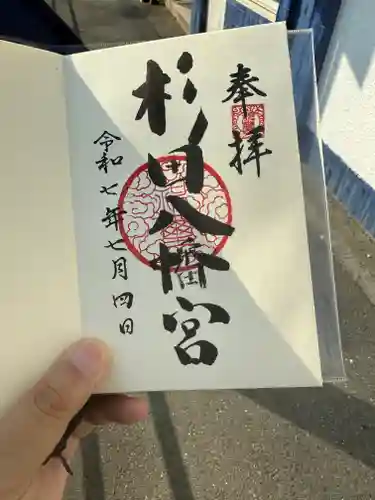 奉拝
杉田八幡宮
令和七年七月四日